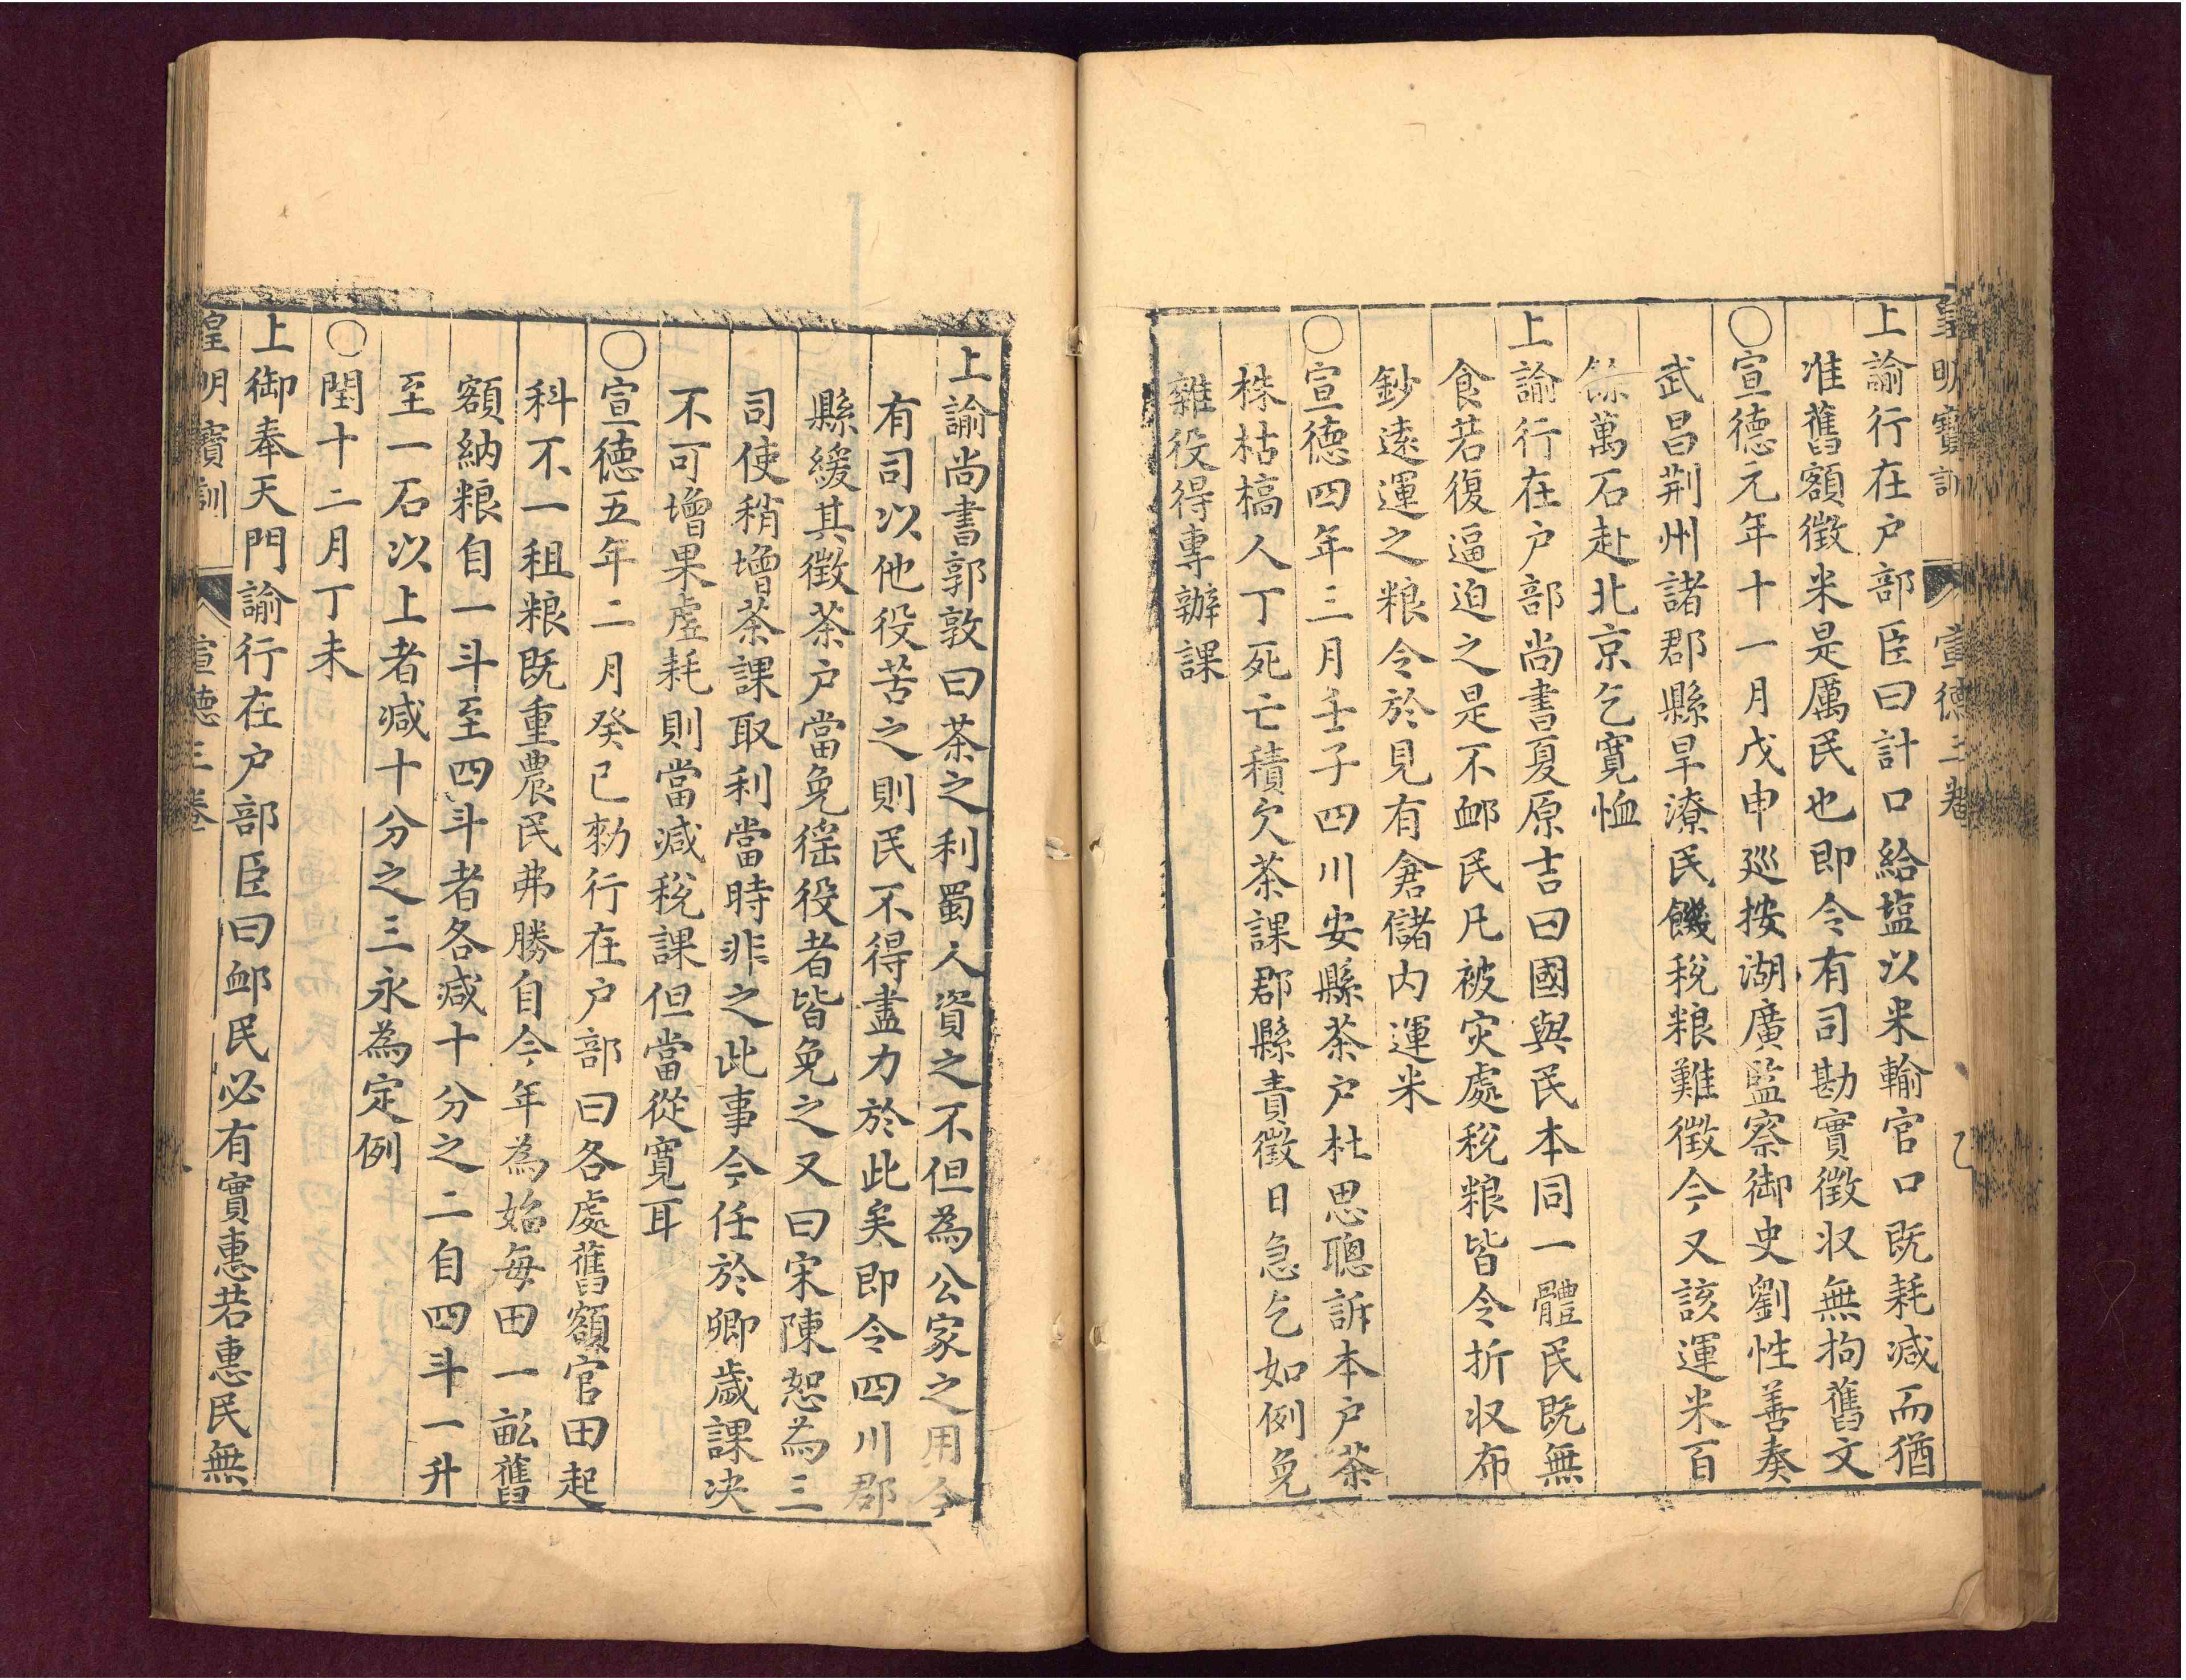 皇明寶訓 宣德三卷 七
上諭行在户部臣曰計口給塩以米輸官口既耗减而猶
准舊額徵米是厲民也即令有司勘實徵収無拘舊文
○宣德元年十一月戊申廵按湖廣監察御史劉性善奏
武昌荆州諸郡縣旱潦民饑稅粮難徵今又該運米百
餘萬石赴北京乞寬恤
上諭行在户部尚書夏原吉曰國與民本同一體民既無
食若復逼迫之是不䘏民凡被灾處稅粮皆令折収布
鈔逺運之粮令於見有倉儲内運米
○宣德四年三月壬子四川安縣茶户杜思聰訴本户茶
株枯槁人丁死亡積欠茶課郡縣責徵日急乞如例免
雜役得專辦課
上諭尚書郭敦曰茶之利蜀人資之不但為公家之用今
有司以他役苦之則民不得盡力於此矣即令四川郡
縣緩其徵茶户當免徭役者皆免之又曰宋陳恕為三
司使稍增茶課取利當時非之此事今任於卿歲課决
不可增果虛耗則當减稅課但當從寬耳
○宣德五年二月癸巳勑行在户部曰各處舊額官田起
科不一租粮既重農民弗勝自今年為始每田一畝舊
額納粮自一斗至四斗者各减十分之二自四斗一升
至一石以上者减十分之三永為定例
○閏十二月丁未
上御奉天門諭行在户部臣曰䘏民必有實惠若惠民無
皇明寶訓 宣德三卷 八